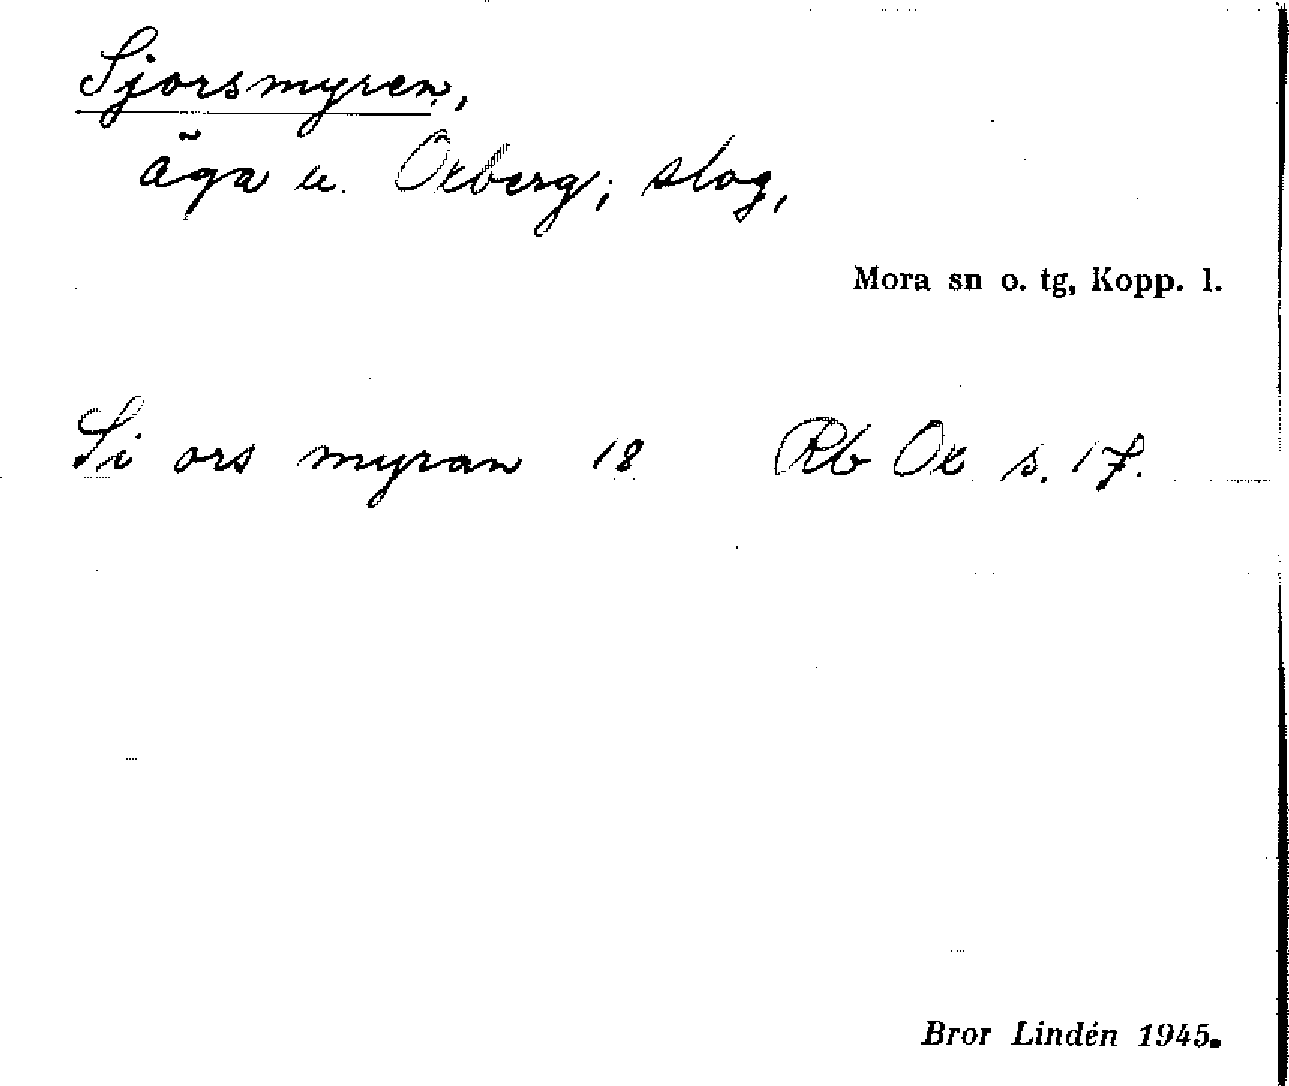 Sjorsmyren,
äga u. Oxberg; slog,
Mora sn o. tg, Kopp. l.
Si ors myran 18 Rb Ox s. 17.
Bror Lindén 1945.